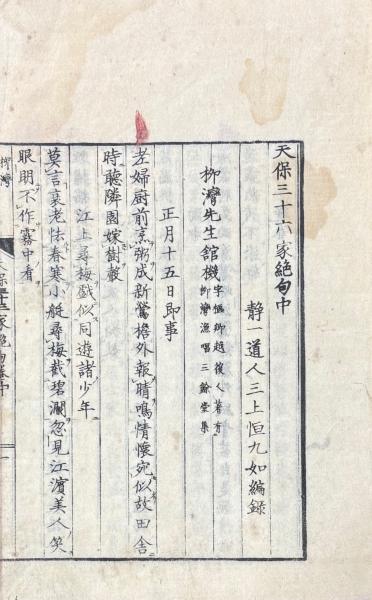 天保三十六家絶句中
靜一道人三上恒九如編錄
柳灣先生舘機
字樞卿越後人著有
柳灣漁唱三餘堂集
正月十五日即事
孝婦厨前烹粥成新鶯檐外報晴鳴情懷宛似故田舍
時聽隣園嫁樹聲
江上尋梅戲似同遊諸少年
莫言衰老怯春寒小艇尋梅截碧瀾忽見江濱美人笑
眼明不作霧中看
柳灣